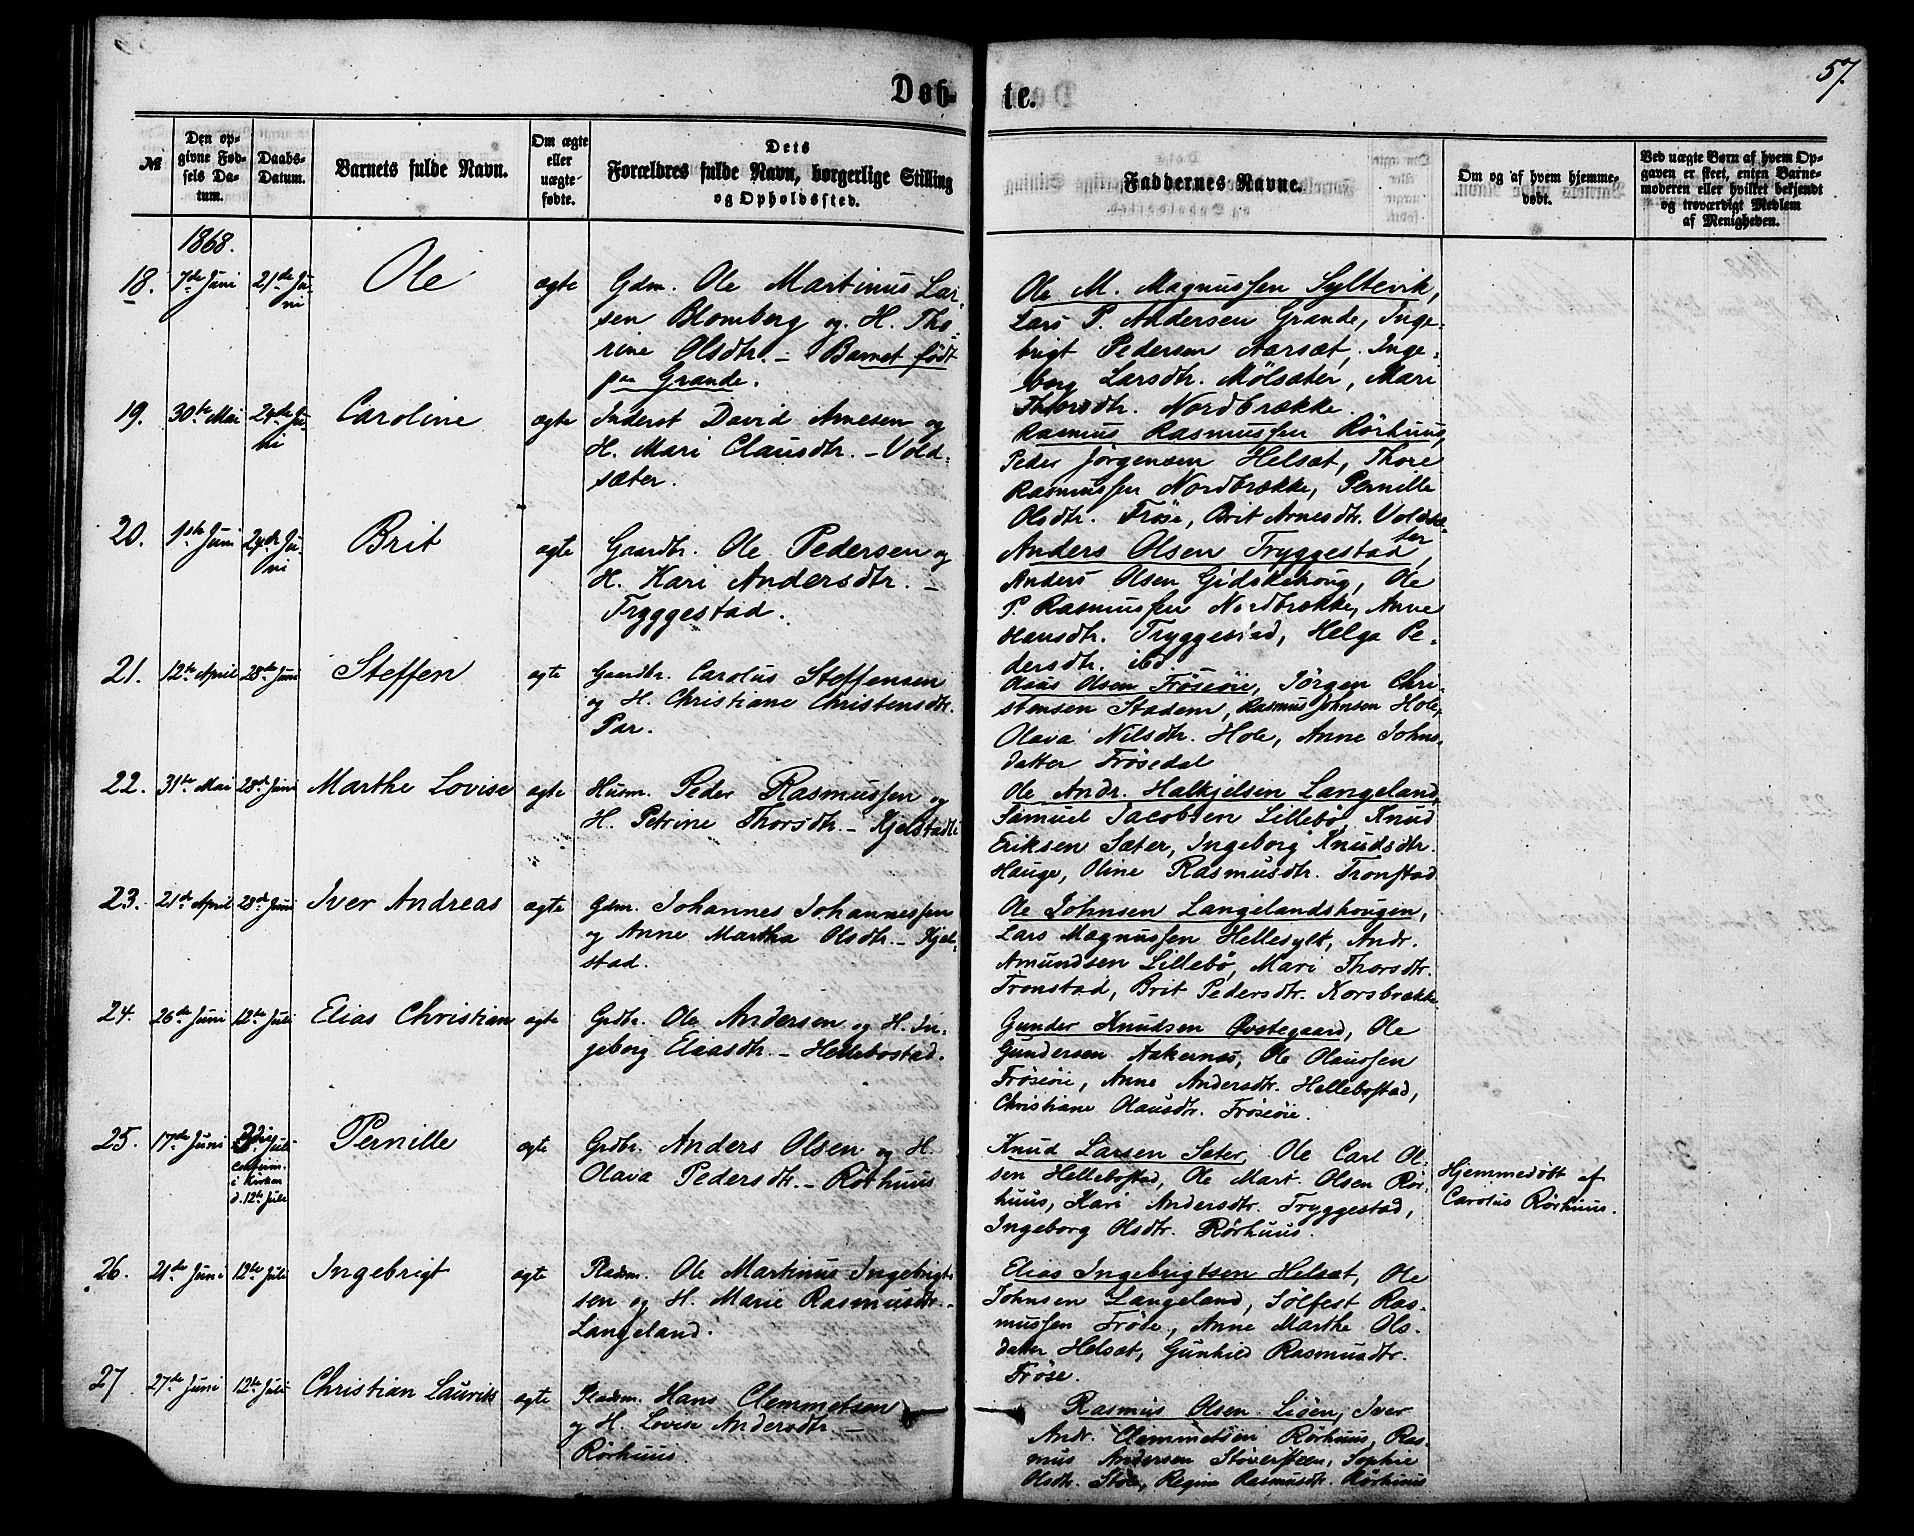 57.
Døb-
te.
№
Den op-
givne Fød-
sels Da-
tum.
Daabs-
Datum.
Barnets fulde Navn.
Om ægte
eller
uægte-
fødte.
Dets
Forældres fulde Navn, borgerlige Stilling
og Opholdssted.
Faddernes Navne.
Om og af hvem hjemme-
døbt.
Ved uægte Børn af hvem Op-
gaven er skeet, enten Barne-
moderen eller hvilket bekjendt
og troværdigt Medlem
af Menigheden.
1868.
18.
7de Juni
21de Ju-
ni
Ole
ægte
Gdm. Ole Martinus Lar-
sen Blomberg og H. Tho-
rine Olsdtr. – Barnet født
paa Grande.
Ole M. Magnussen Syltevik,
Lars P. Andersen Grande, Inge-
brigt Pedersen Aarsæt, Inge-
borg Larsdtr. Mölsæter, Mari
Thorsdtr. Nordbrække.
19.
30te Mai
24de Ju-
ni
Caroline
ægte
Inderst David Arnesen og
H. Mari Clausdtr. – Vold-
sæter.
Rasmus Rasmussen Rörhuus,
Peder Jörgensen Helsæt, Thore
Rasmussen Nordbrække, Pernille
Olsdtr. Fröse, Brit Arnesdtr. Voldsæ-
ter
20.
1ste Juni
24de Ju-
ni
Brit
ægte
Gaardbr. Ole Pedersen og
H. Kari Andersdtr. –
Tryggestad.
Anders Olsen Tryggestad,
Anders Olsen Gidskehoug, Ole
P. Rasmussen Nordbrække, Anne
Hansdtr. Tryggestad, Helga Pe-
dersdtr. ibd.
21.
12te April
28de Juni
Steffen
ægte
Gaardbr. Carolus Steffensen
og H. Christiane Christensdtr.
Par.
Olaus Olsen Fröseöie, Jörgen Chri-
stensen Stadem, Rasmus Johnsen Hole,
Olava Nilsdtr. Hole, Anne Johns-
datter Frösedal
22.
31te Mai
28de Juni
Marthe Lovise
ægte
Husm. Peder Rasmussen og
H. Petrine Thorsdtr. – Kjelstadli
Ole Andr. Halkjelsen Langeland,
Samuel Jacobsen Lillebö, Knud
Eriksen Sæter, Ingeborg Knudsdtr.
Hauge, Oline Rasmusdtr. Tronstad
23.
21de April
28de Juni
Iver Andreas
ægte
Gdm. Johannes Johannessen
og Anne Martha Olsdtr. – Kjel-
stad.
Ole Johnsen Langelandshougen,
Lars Magnussen Hellesylt, Andr.
Amundsen Lillebö, Mari Thorsdtr.
Tronstad, Brit Pedersdtr. Korsbrække
24.
26de Juni
12te Juli
Elias Christian
ægte
Grdbr. Ole Andersen og H. In-
geborg Eliasdtr. – Hellebostad.
Gunder Knudsen Øvstegaard, Ole
Gundersen Aakernæs, Ole Olaussen
Fröseöie, Anne Andersdtr. Hellebostad,
Christiane Olausdtr. Fröseöie.
25.
17de Juni
3die Juli
confirm.
i Kirken
d. 12te Juli
Pernille
ægte
Grdbr. Anders Olsen og H.
Olava Pedersdtr. – Rörhuus
Knud Larsen Sæter, Ole Carl Ol-
sen Hellebostad, Ole Mart. Olsen Rör-
huus, Kari Andersdtr. Tryggestad,
Ingeborg Olsdtr. Rörhuus.
Hjemmedöbt af
Carolus Rörhuus.
26.
21de Juni
12te Juli
Ingebrigt
ægte
Pladsm. Ole Martinus Ingebrigt-
sen og H. Marie Rasmusdtr. –
Langeland.
Elias Ingebrigtsen Helsæt, Ole
Johnsen Langeland, Sölfest Ras-
mussen Fröse, Anne Marthe Ols-
datter Helsæt, Gunhild Rasmusdtr.
Fröse.
27
27de Juni
12te Juli
Christian Laurits
ægte
Pladsm. Hans Clemmetsen
og H. Lovise Andersdtr. –
Rörhuus.
Rasmus Olsen Liöen, Iver
Andr. Clemmetsen Rörhuus, Ras-
mus Andersen Støversteen, Sophie
Olsdtr. Regine Rasmusdtr. Rörhuus